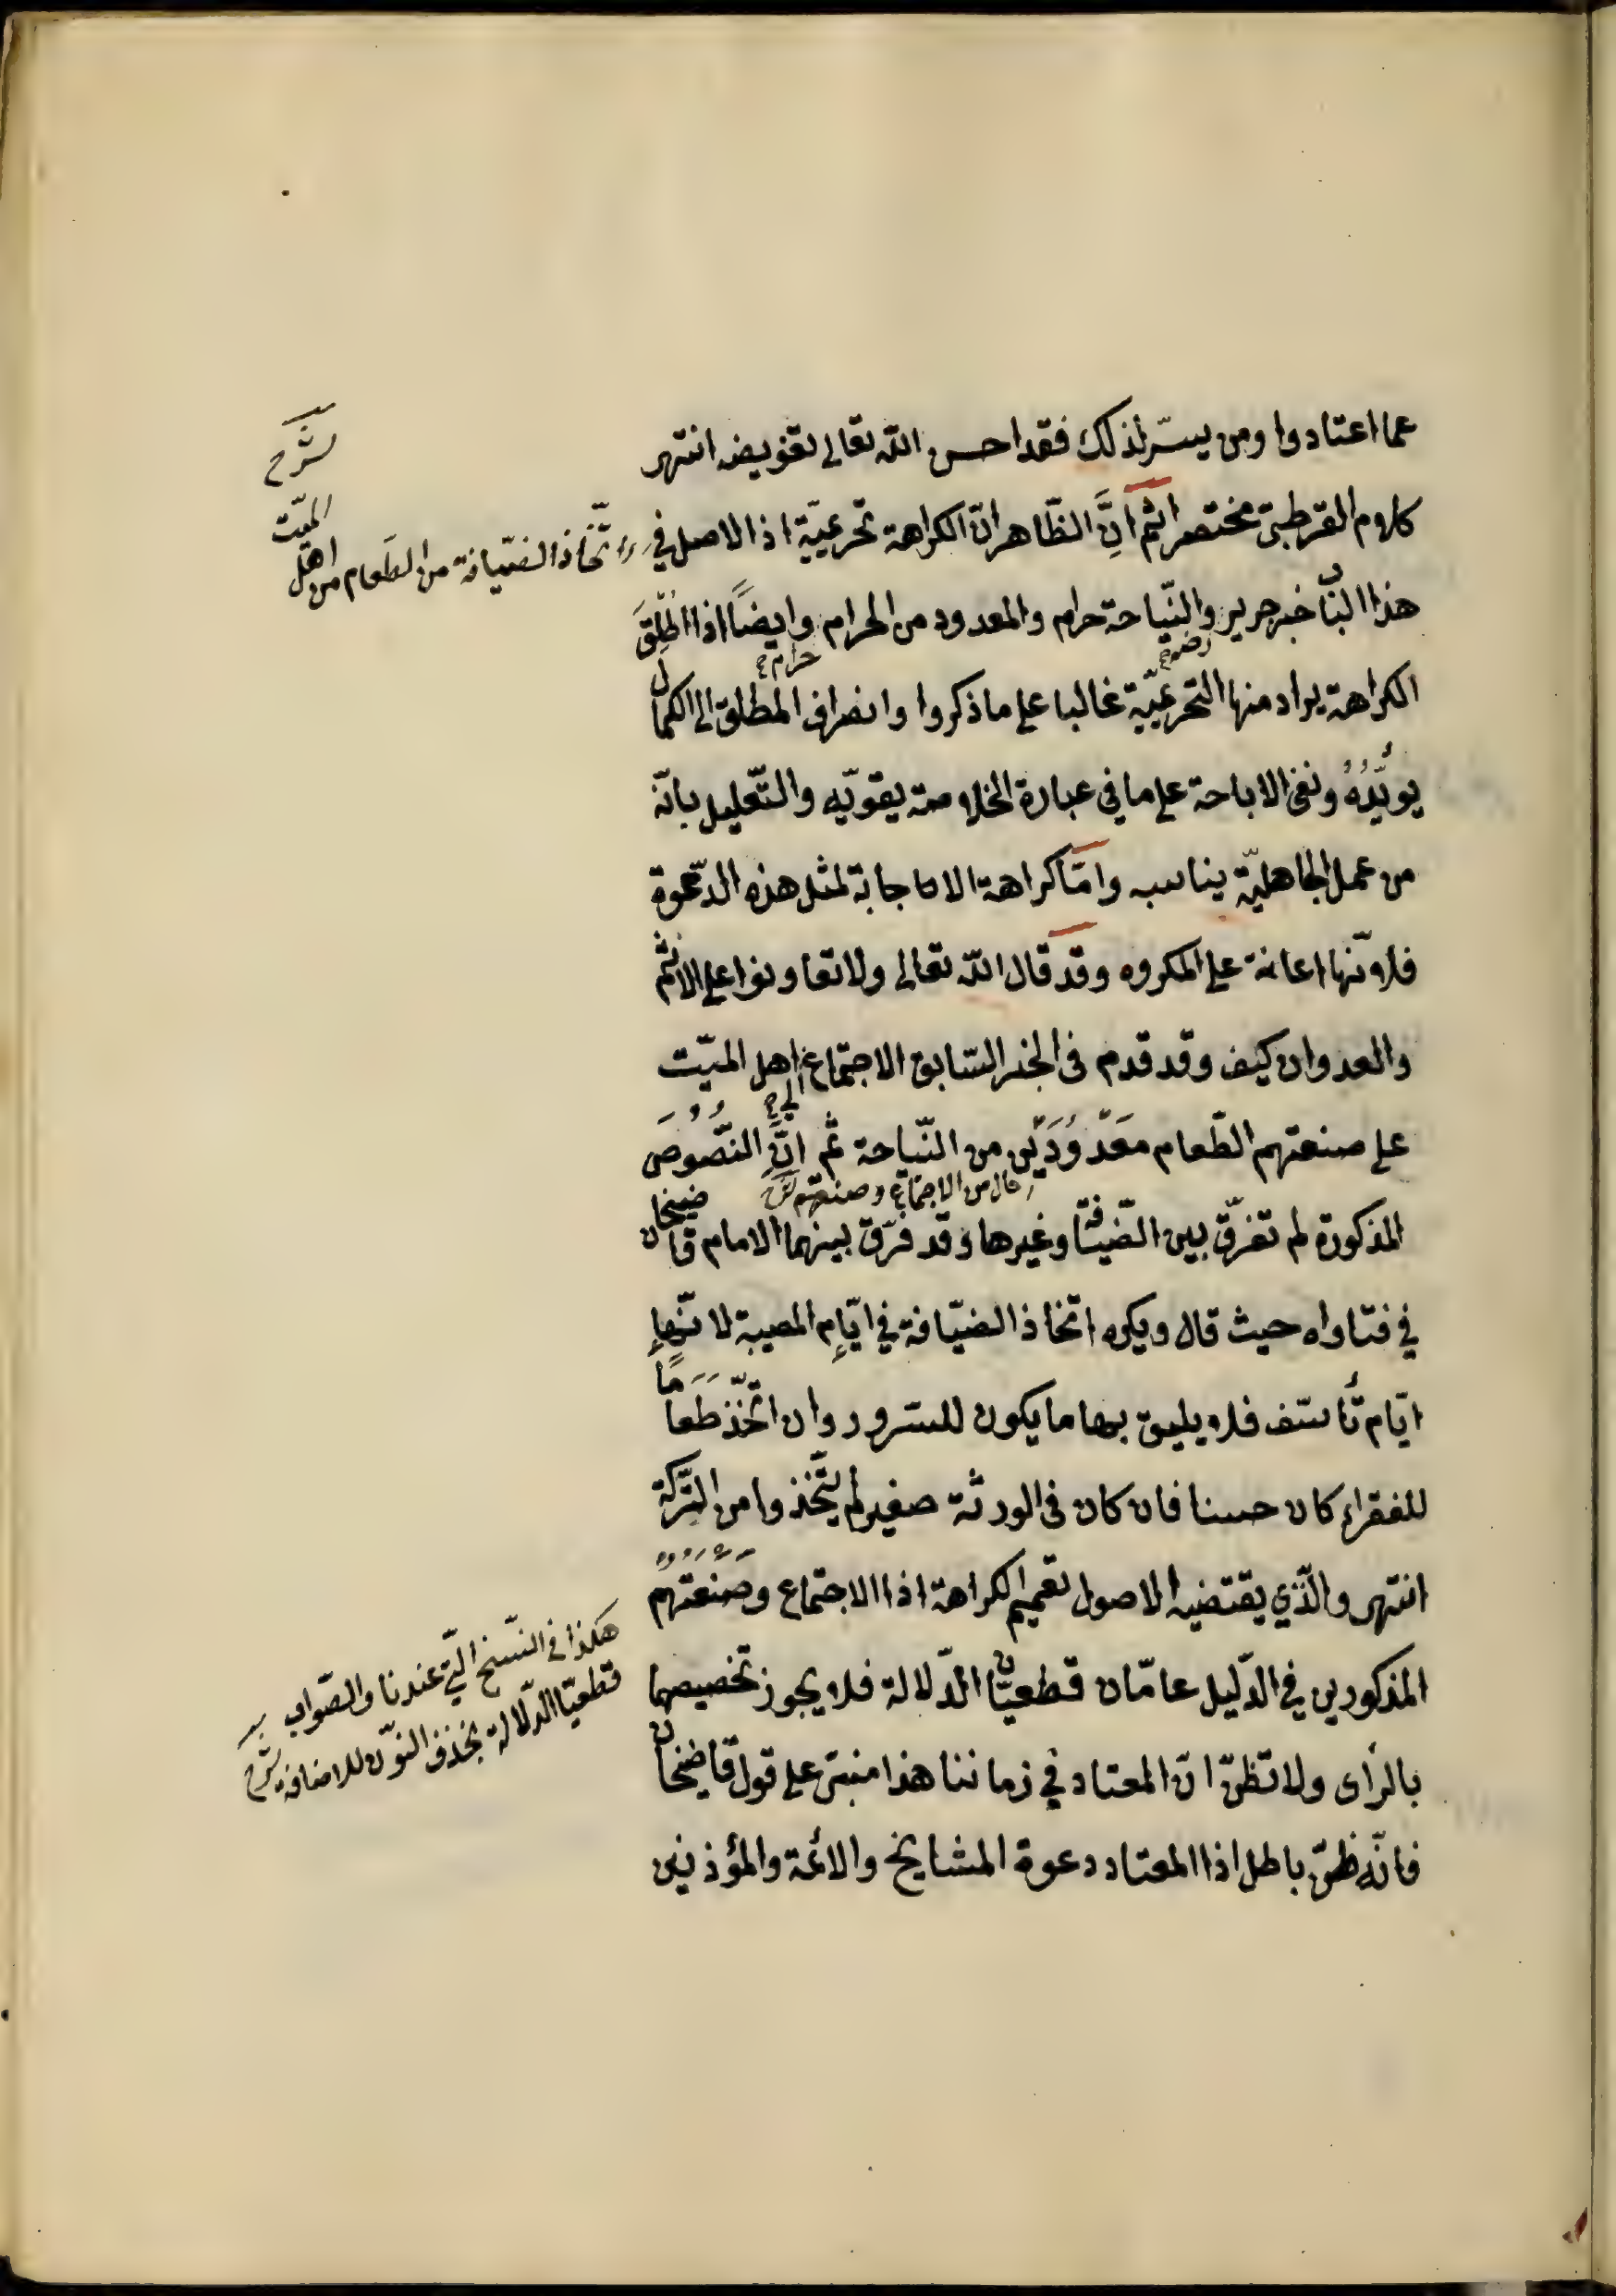 عما اعتادوا ومن يسّر لذلك فقد احسن الله تعالى تعويضه انتهى
كلام القرطبيّ مختصرا ثمّ انَّ الظّاهر انّ الكراهة تحريميّة اذ الاصل في
هذا الباب خبر جرير والنّياحة حرام والمعدود من الحرام وايضاً اذا اطلِقَ
رضه حرام
الكراهة يراد منها التحريميّة غالبا على ما ذكروا وانصراف المطلق الى الكمال
يؤيّدُهُ ونفى الاباحة على ما في عبارة الخلاصة يقوّيه والتّعليل بانّه
من عمل الجاهليّة يناسبه وامّا كراهة الاجابة لمثل هذه الدّعوة
فلانّها اعانة على المكروه وقد قال الله تعالى ولا تعاونوا على الاثم
والعدوان كيف وقد قدم فى الخبر السّابق الاجتماع اهل الميّت
الى
على صنعتهم الطّعام معَدّوُدَيْن من النّياحة ثمّ انَّ النّصُوصَ
حال من الاجتماع وصنعتهم شرح
المذكورة لم تفرّق بين الضّيافة وغيرها وقد فرّق بينهما الامام قاضيخان
في فتاواه حيث قال ويكره اتّخاذ الضّيافة في ايّامِ المصيبة لانّها
ايّام تأسّف فلا يليق بها ما يكون للسّرور وان اتّخذ طَعَامًا
للفقراء كان حسنا فان كان فى الورثة صغير لم يتّخذوا من التّركة
انتهى والّذي يقتضيه الاصول تعميم الكراهة اذ الاجتماع وصَنْعَتُهُمْ
المذكورين في الدّليل عامّان قطعيّان الدّلالة فلا يجوز تخصيصهما
بالرّأى ولا تظنّ انّ المعتاد في زماننا هذا مبنيّ على قول قاضيخان
فانّه ظنّ باطل اذ المعتاد دعوة المشايخ والائمّة والمؤذنين
اتّخاذ الضّيافة من الطّعام من اهل
الميّت
شرح
هكذا في النّسخ الّتي عندنا والصّواب
قطعيّا الدّلالة بحذف النّون للاضافة شرح